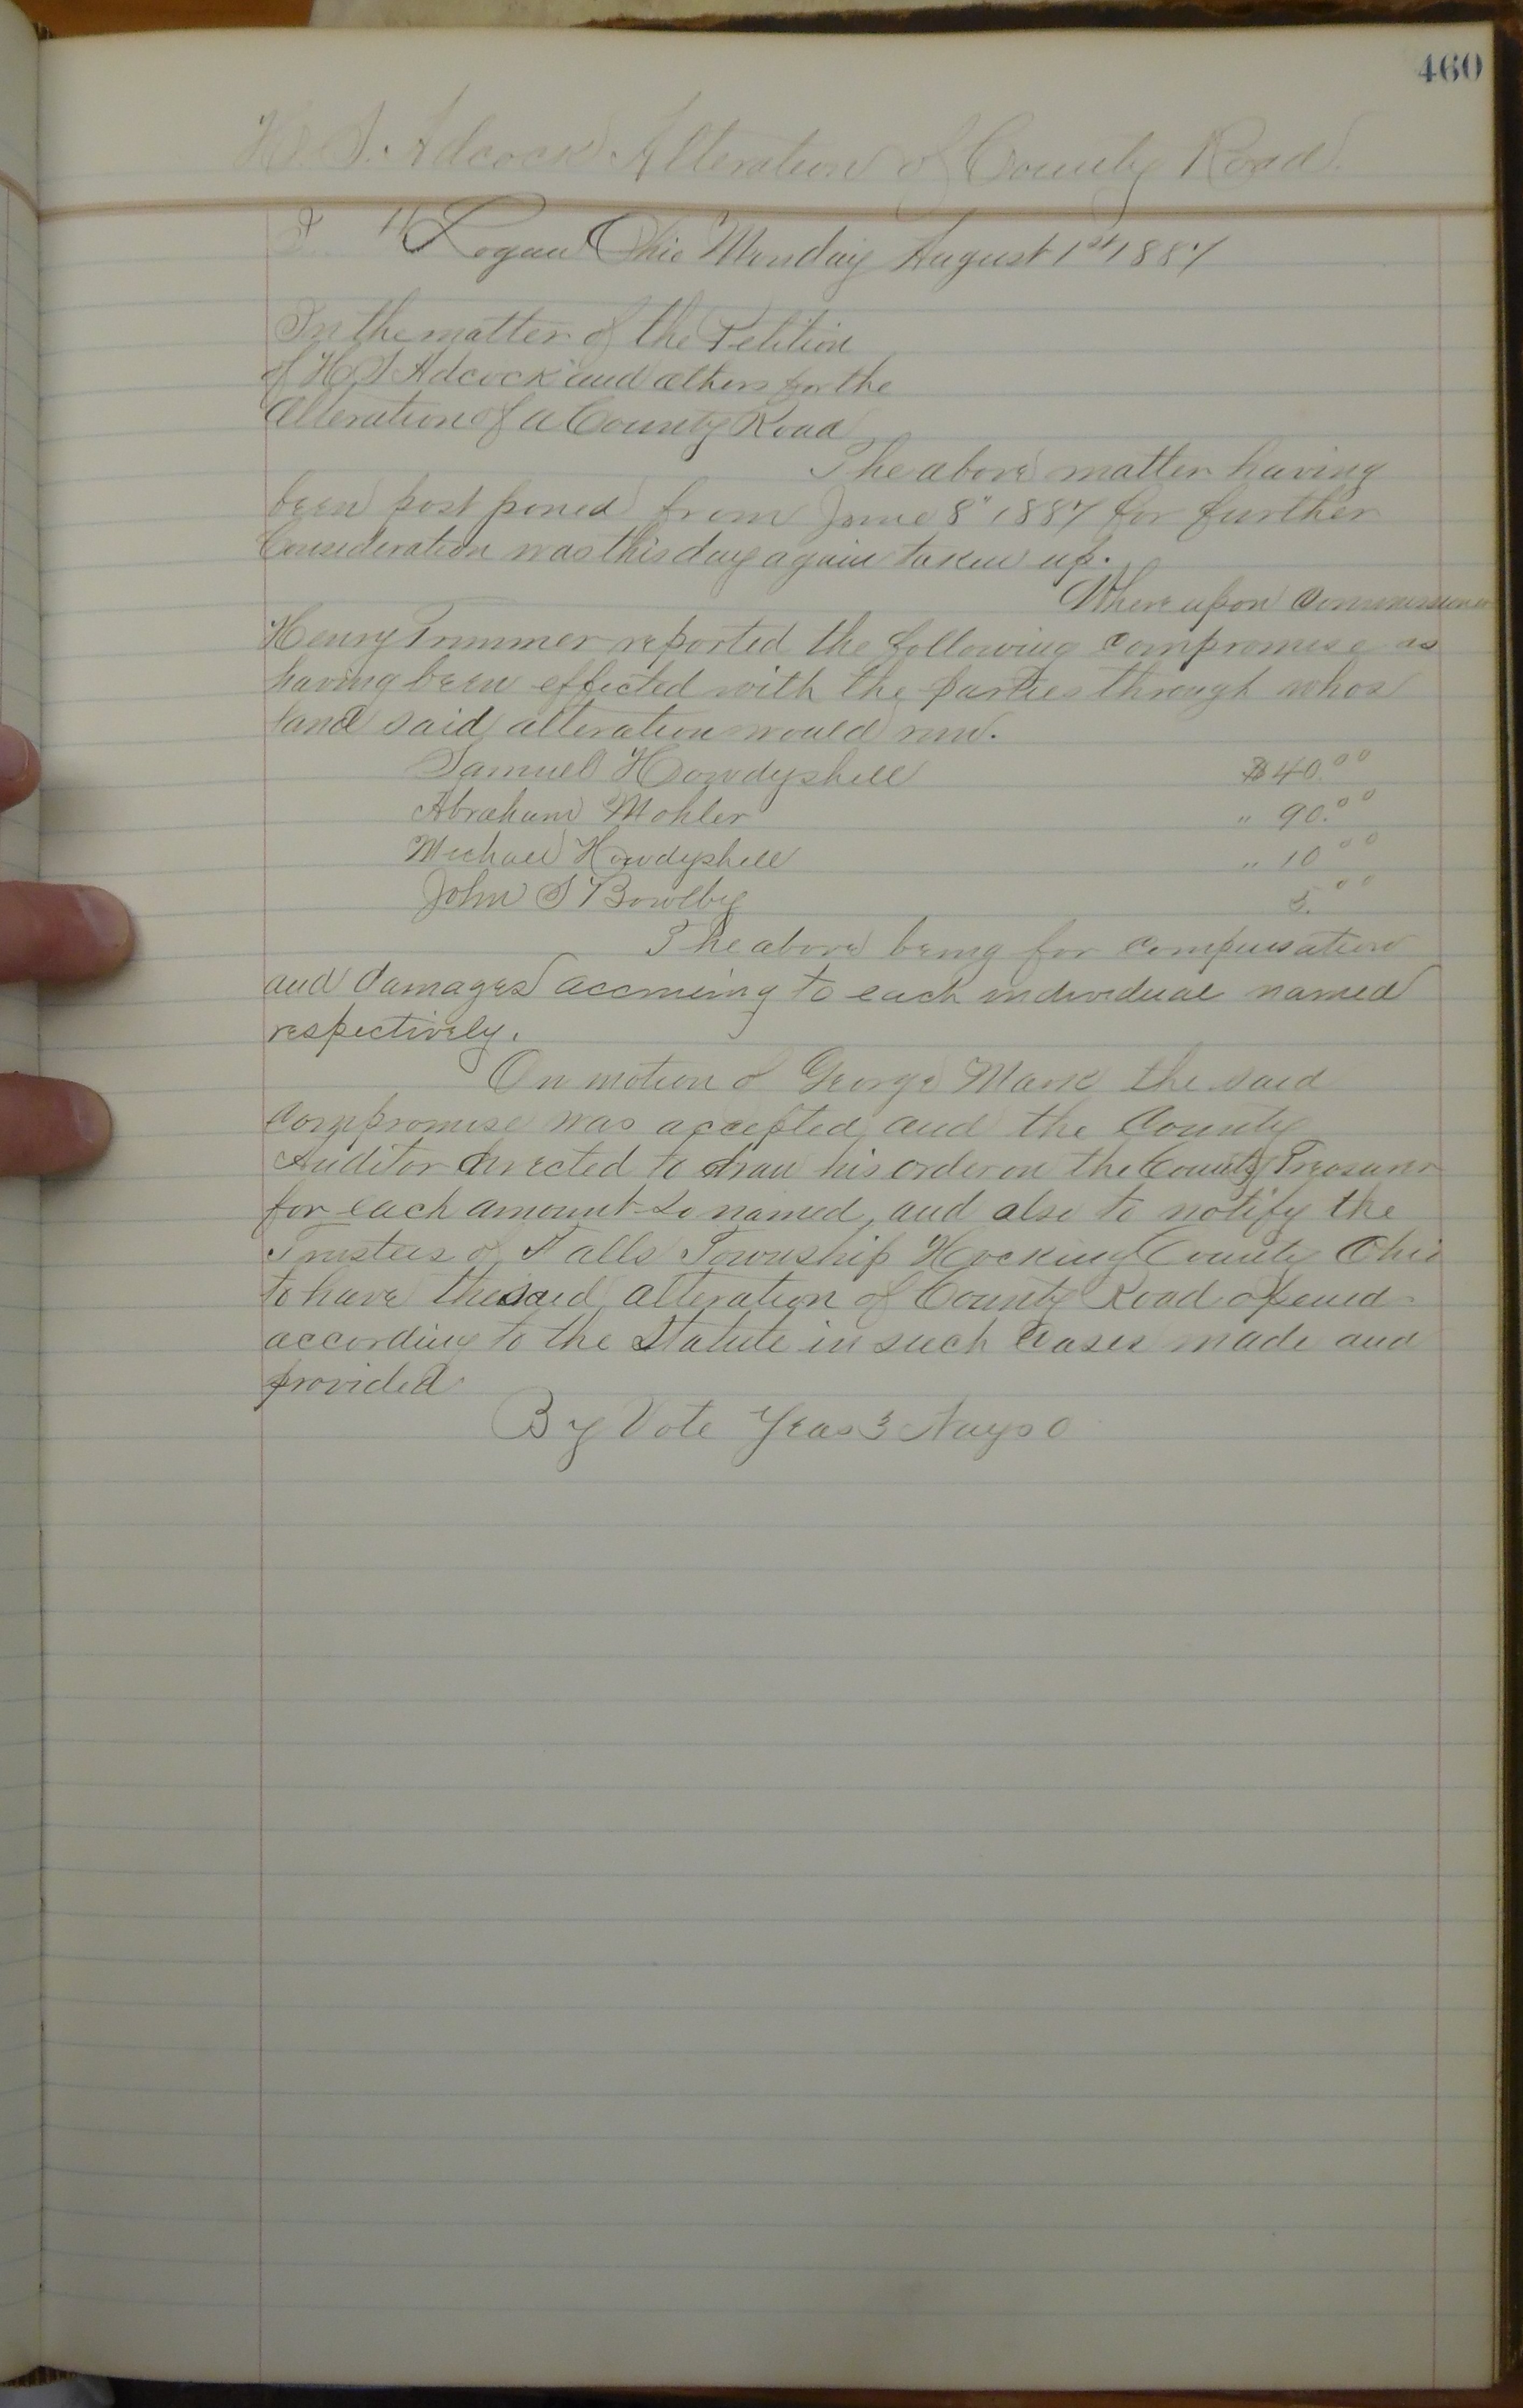 460
H. S. Adcock Alteration of County Road.
Logan Ohio Monday August 1st 1887
In the matter of the Petition
of H S Adcock and others for the
Alteration of a County Road
The above matter having
been post poned from June 8" 1887 for further
Consideration was this day again taken up.
Where upon Commissioner
Henry Trimmer reported the following compromise as
having been effected with the parties through whos
land said alteration would run.
Samuel Howdyshell $40.00
Abraham Mohler " 90.00
Michael Howdyshell " 10 00
John S Bowlby 5.00
The above being for compensation
and damages accrueing to each individual named
respectively.
On motion of George Mark the said
compromise was accepted and the County
Auditor directed to draw his order on the County Treasurer
for each amount so named, and also to notify the
Trustees of Falls Township Hocking County Ohio
to have the said alteration of County Road opened
according to the Statute in such cases made and
provided
By Vote Yeas 3 Nays 0